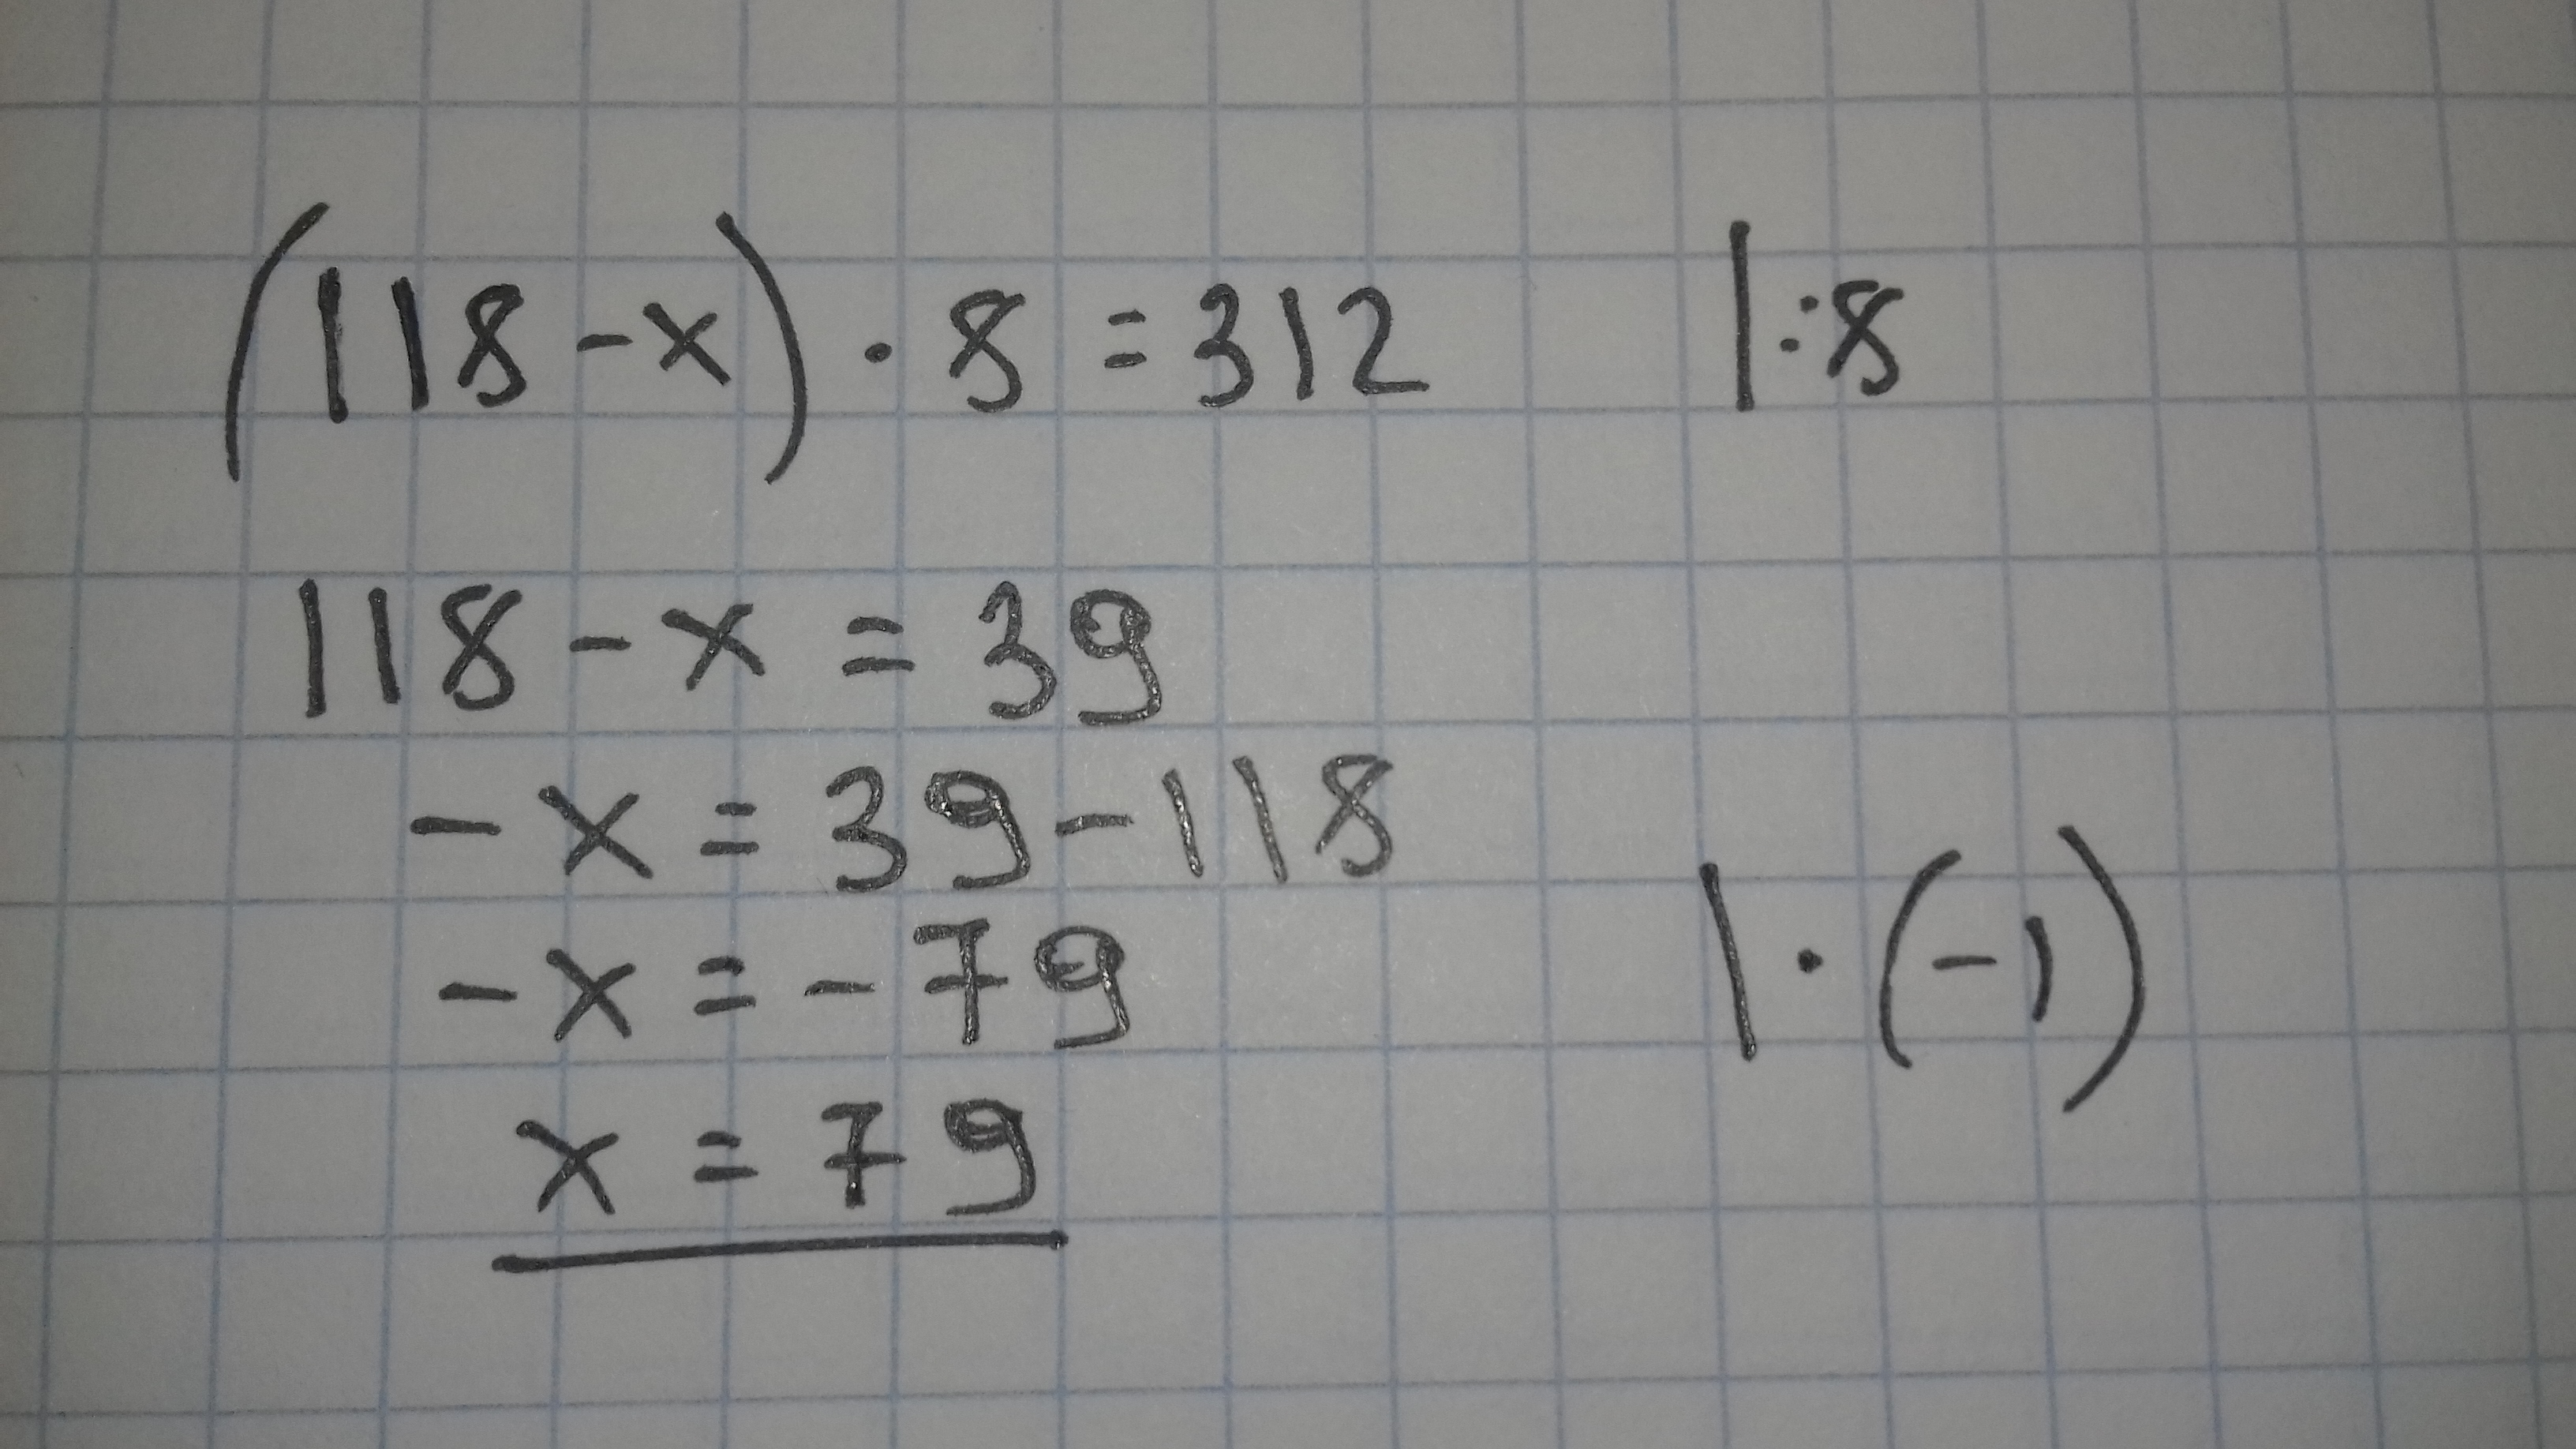 (118-x)·8=312 |:8
118-x=39
-x=39-118
-x=-79 |·(-1)
x=79